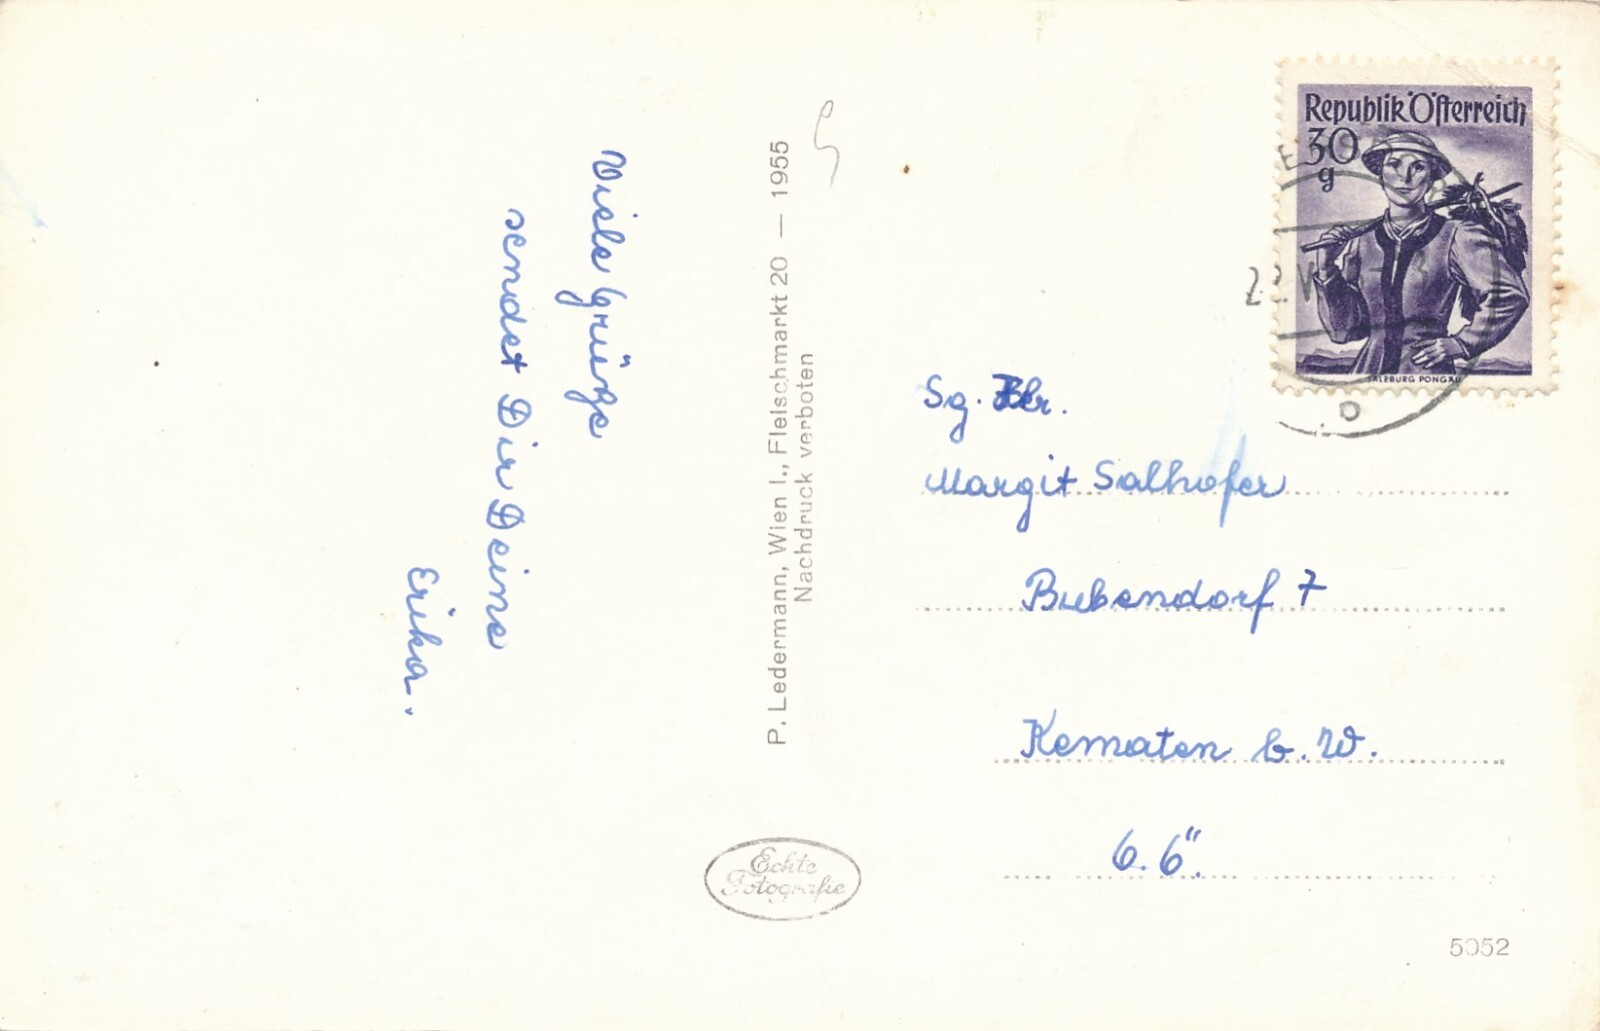 Viele Grüße
sendet Dir Deine
Erika.
P. Ledermann, Wien I., Fleischmarkt 20 — 1955
Nachdruck verboten
Echte
Fotografie
Republik Österreich
30
g
SALZBURG PONGAU
Sg.
Margit Salhofer
Bubendorf 7
Kematen b. W.
6. 6".
5052